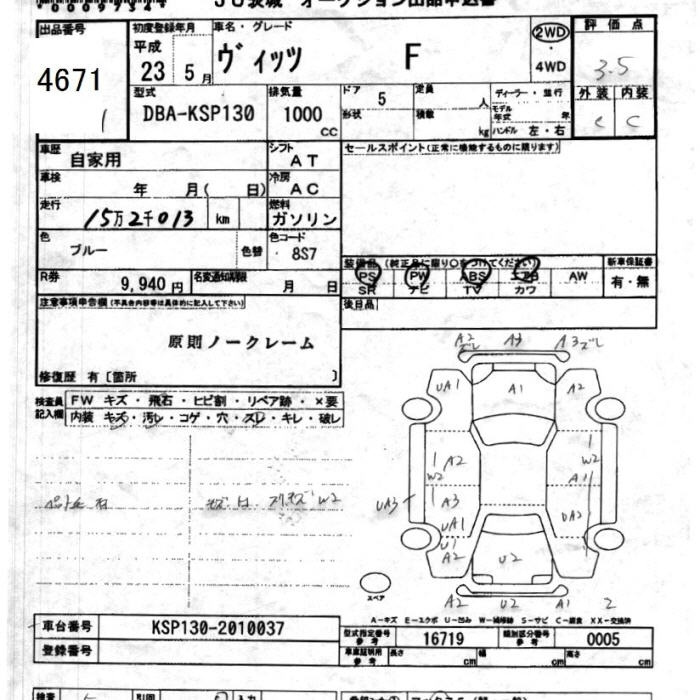 JU茨城 オークション出品申込書
出品番号 4671
初度登録年月 平成 23 5月
車名・グレード ヴィッツ F
2WD・4WD
評価点 3.5
外装 C 内装 C
型式 DBA-KSP130
排気量 1000 cc
ドア 5 形状
定員 人 積載 kg
ディーラー・並行
モデル年式 年
ハンドル 左・右
車歴 自家用
シフト AT
セールスポイント(正常に機能するものに限ります)
車検 年 月( 日)
冷房 AC
走行 15万2千013 km
燃料 ガソリン
色 ブルー 色替
色コード 8S7
R券 9,940円
名変通知期限 月 日
装備品 (純正品に限り○をつけてください)
PS PW ABS エアB AW
SR ナビ TV カワ
新車保証書 有・無
後日品
注意事項申告欄 (不具合内容等は具体的に記入して下さい)
原則ノークレーム
修復歴 有[箇所 ]
検査員記入欄
FW キズ・飛石・ヒビ割・リペア跡・×要
内装 キズ・汚レ・コゲ・穴・スレ・キレ・破レ
A2 A3 A3ズレ
ズレ
UA1 A1 A2
A2 W2
W2 A1
UA3 A3
UA1 UA2
U1
A2 U2
スペア
A2 U2 A1 2
A-キズ E-エクボ U-凹み W-補修跡 S-サビ C-腐食 XX-交換済
車台番号 KSP130-2010037
登録番号
型式指定番号 参考 16719
類別区分番号 参考 0005
車庫証明用 参考 長さ cm 幅 cm 高さ cm